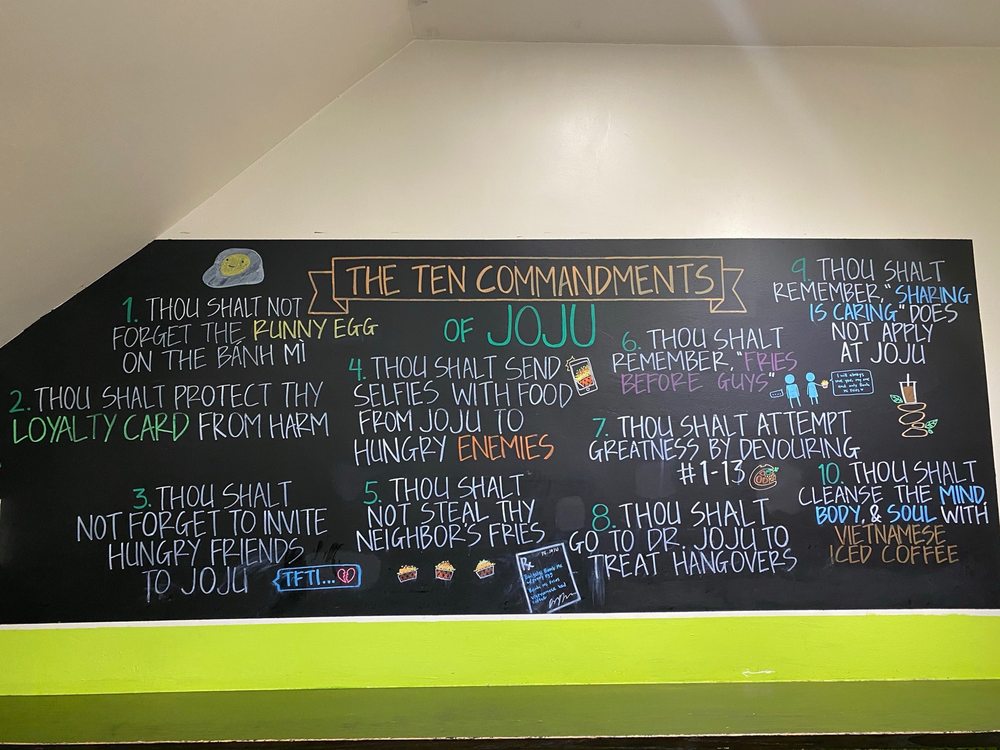 THE TEN COMMANDMENTS
OF JOJU
1. THOU SHALT NOT
FORGET THE RUNNY EGG
ON THE BÁNH MÌ
2. THOU SHALT PROTECT THY
LOYALTY CARD FROM HARM
3. THOU SHALT
NOT FORGET TO INVITE
HUNGRY FRIENDS
TO JOJU
TFTI...
4. THOU SHALT SEND
SELFIES WITH FOOD
FROM JOJU TO
HUNGRY ENEMIES
5. THOU SHALT
NOT STEAL THY
NEIGHBOR'S FRIES
6. THOU SHALT
REMEMBER, "FRIES
BEFORE GUYS"
I will always
7. THOU SHALT ATTEMPT
GREATNESS BY DEVOURING
#1-13
8. THOU SHALT
GO TO DR. JOJU TO
TREAT HANGOVERS
Rx
DR. JOJU
9. THOU SHALT
REMEMBER, "SHARING
IS CARING" DOES
NOT APPLY
AT JOJU
10. THOU SHALT
CLEANSE THE MIND,
BODY, & SOUL WITH
VIETNAMESE
ICED COFFEE